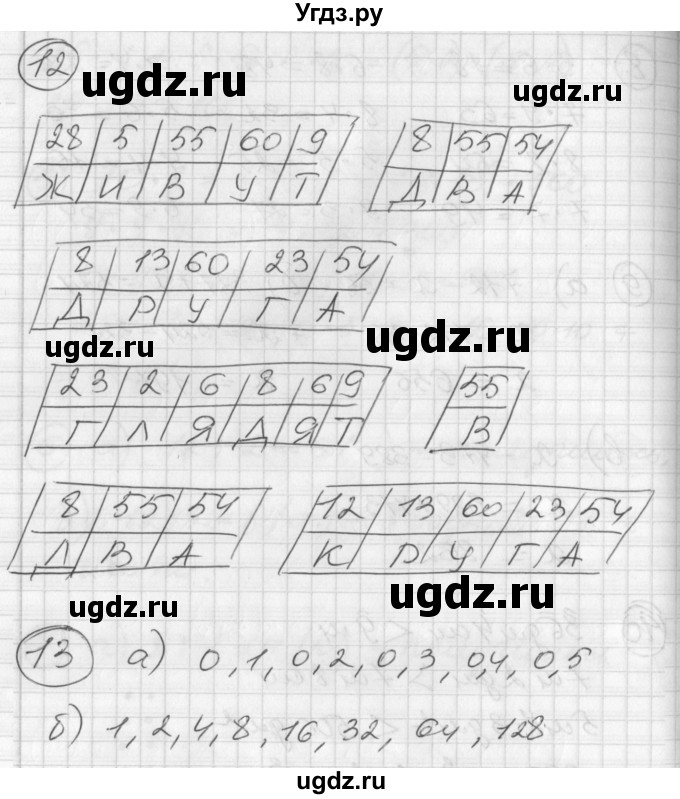 Угдз.ру
12
ugdz.ru ugdz.ru
28 5 55 60 9 8 55 54
Ж И В У Т Д В А
8 13 60 23 54
Д Р У Г А
ugdz.ru ugdz.ru
23 2 6 8 6 9 55
Г Л Я Д Я Т В
8 55 54 12 13 60 23 54
Д В А К Р У Г А
ugdz.ru ugdz.ru
13 а) 0, 1, 0, 2, 0, 3, 0,4, 0, 5
б) 1, 2, 4, 8, 16, 32, 64, 128
ugdz.ru